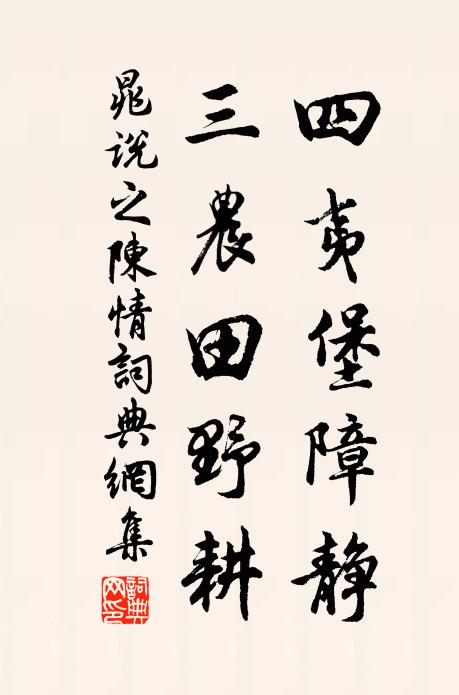 四夷堡障静
三農田野耕
晁说之陳情詞典網集
詞典网印